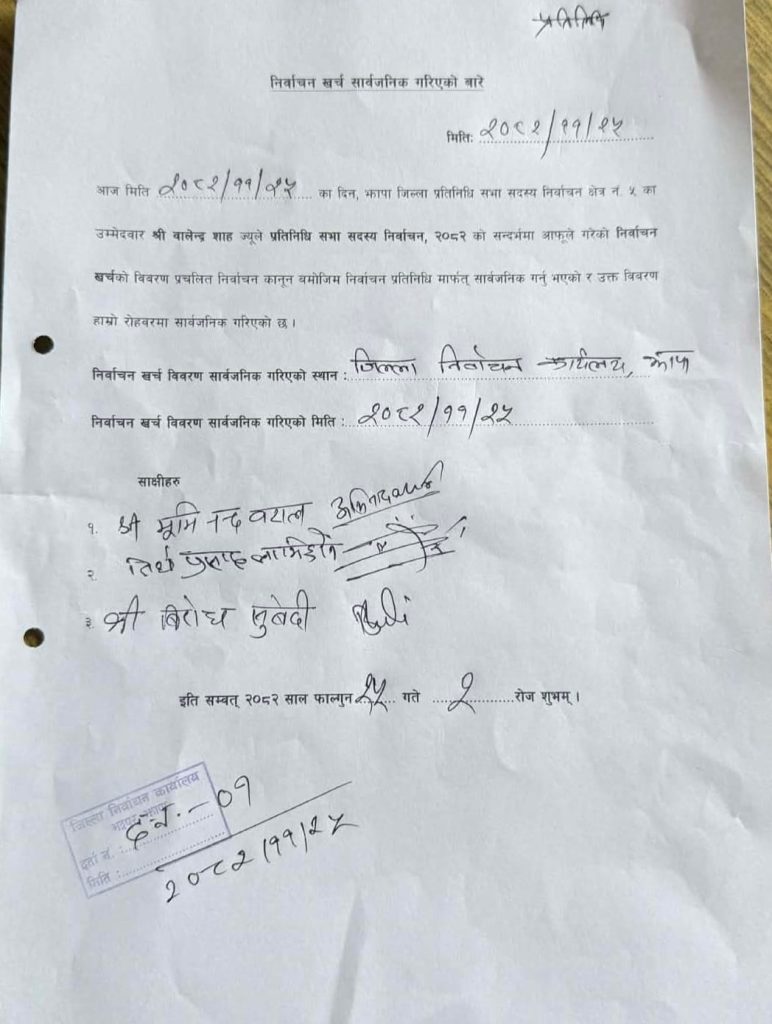 प्रतिलिपि
निर्वाचन खर्च सार्वजनिक गरिएको बारे
मितिः २०८२/११/२५
आज मिति २०८२/११/२५ का दिन, झापा जिल्ला प्रतिनिधि सभा सदस्य निर्वाचन क्षेत्र नं. ५ का
उम्मेदवार श्री वालेन्द्र शाह ज्यूले प्रतिनिधि सभा सदस्य निर्वाचन, २०८२ को सन्दर्भमा आफूले गरेको निर्वाचन
खर्चको विवरण प्रचलित निर्वाचन कानून बमोजिम निर्वाचन प्रतिनिधि मार्फत् सार्वजनिक गर्नु भएको र उक्त विवरण
हाम्रो रोहवरमा सार्वजनिक गरिएको छ ।
निर्वाचन खर्च विवरण सार्वजनिक गरिएको स्थान : जिल्ला निर्वाचन कार्यालय, झापा
निर्वाचन खर्च विवरण सार्वजनिक गरिएको मिति : २०८२/११/२५
साक्षीहरु
१. श्री भूमि
२. तिर्थ प्रसाद
३. श्री बिरोध सुबेदी
इति सम्वत् २०८२ साल फाल्गुन २५ गते २ रोज शुभम् ।
जिल्ला निर्वाचन कार्यालय
भद्रपुर, झापा
दर्ता नं. : द.नं. - ०१
मिति : २०८२/११/२५